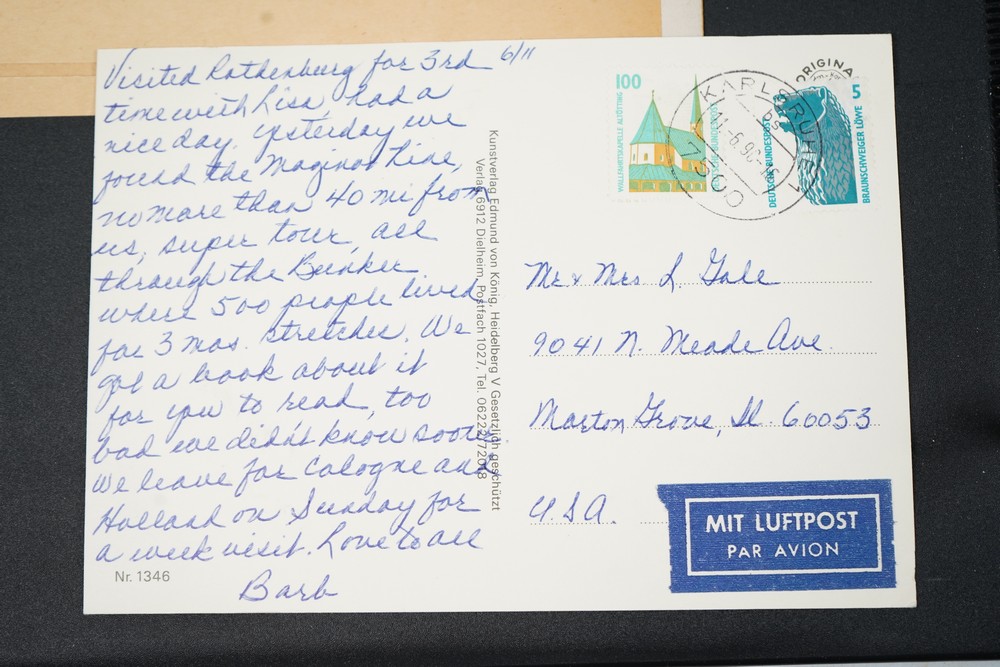 Visited Rothenburg for 3rd 6/11
time with Lisa, had a
nice day. Yesterday we
found the Maginot Line,
no more than 40 mi from
us, super tour, all
through the Bunker
where 500 people lived
for 3 mos. stretches. We
got a book about it
for you to read, too
bad we didn't know sooner.
We leave for Cologne and
Holland on Sunday for
a week visit. Love to all
Barb
Nr. 1346
Kunstverlag Edmund von König, Heidelberg V Gesetzlich geschützt
Verlag 6912 Dielheim, Postfach 1027, Tel. 06222/72018
100
WALLFAHRTSKAPELLE ALTÖTTING
DEUTSCHE BUNDESPOST
KARLSRUHE 1
7500
ORIGINA
5
DEUTSCHE BUNDESPOST
BRAUNSCHWEIGER LÖWE
Mr & Mrs L. Gale
9041 N. Meade Ave.
Morton Grove, Il. 60053
U.S.A.
MIT LUFTPOST
PAR AVION